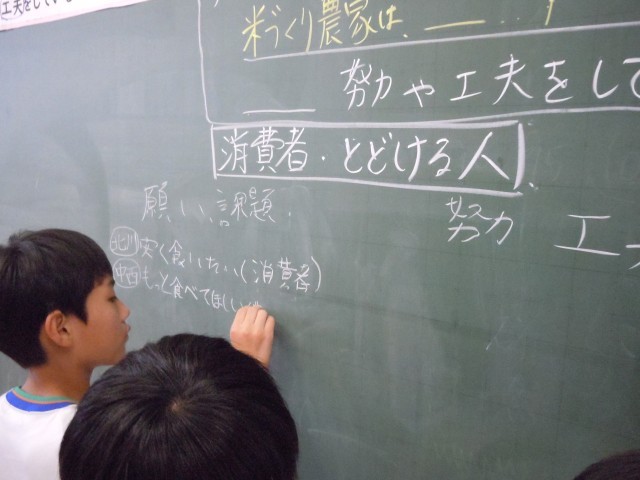 工夫をしてい
米づくり農家は、＿＿...
＿＿努力や工夫をして
消費者・とどける人
願い、課題
努力 工夫
北川 安く食いたい(消費者)
中西 もっと食べてほしい